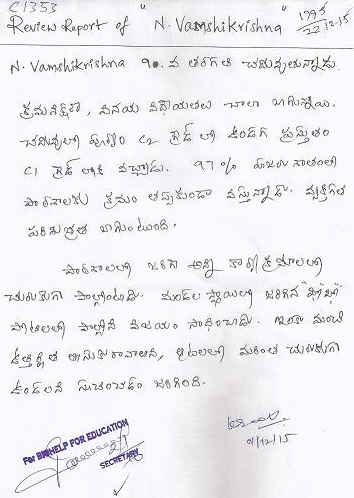 C1353
Review Report of "N. Vamshikrishna" 1795/22-12-15
N. Vamshikrishna 10.వ తరగతి చదువుతున్నాడు.
క్రమశిక్షణ, వినయ విధేయతలు చాలా బాగున్నాయి.
చదువులో పూర్వం C2 గ్రేడ్ లో ఉండగా ప్రస్తుతం
C1 గ్రేడ్ లోకి వచ్చాడు. 97% హాజరు శాతంతో
పాఠశాలకు క్రమం తప్పకుండా వస్తున్నాడు. వ్యక్తిగత
పరిశుభ్రత బాగుంటుంది.
పాఠశాలలో జరిగే అన్ని కార్యక్రమాలలో
చురుకుగా పాల్గొంటాడు. మండల స్థాయిలో జరిగిన
పోటీలలో పాల్గొని విజయం సాధించాడు. ఇంకా మంచి
ఉత్తీర్ణత తీసుకురావాలని, ఆటలలో మరింత చురుకుగా
ఉండాలని సూచించడం జరిగింది.
For BIGHELP FOR EDUCATION
SECRETARY
9/12/15